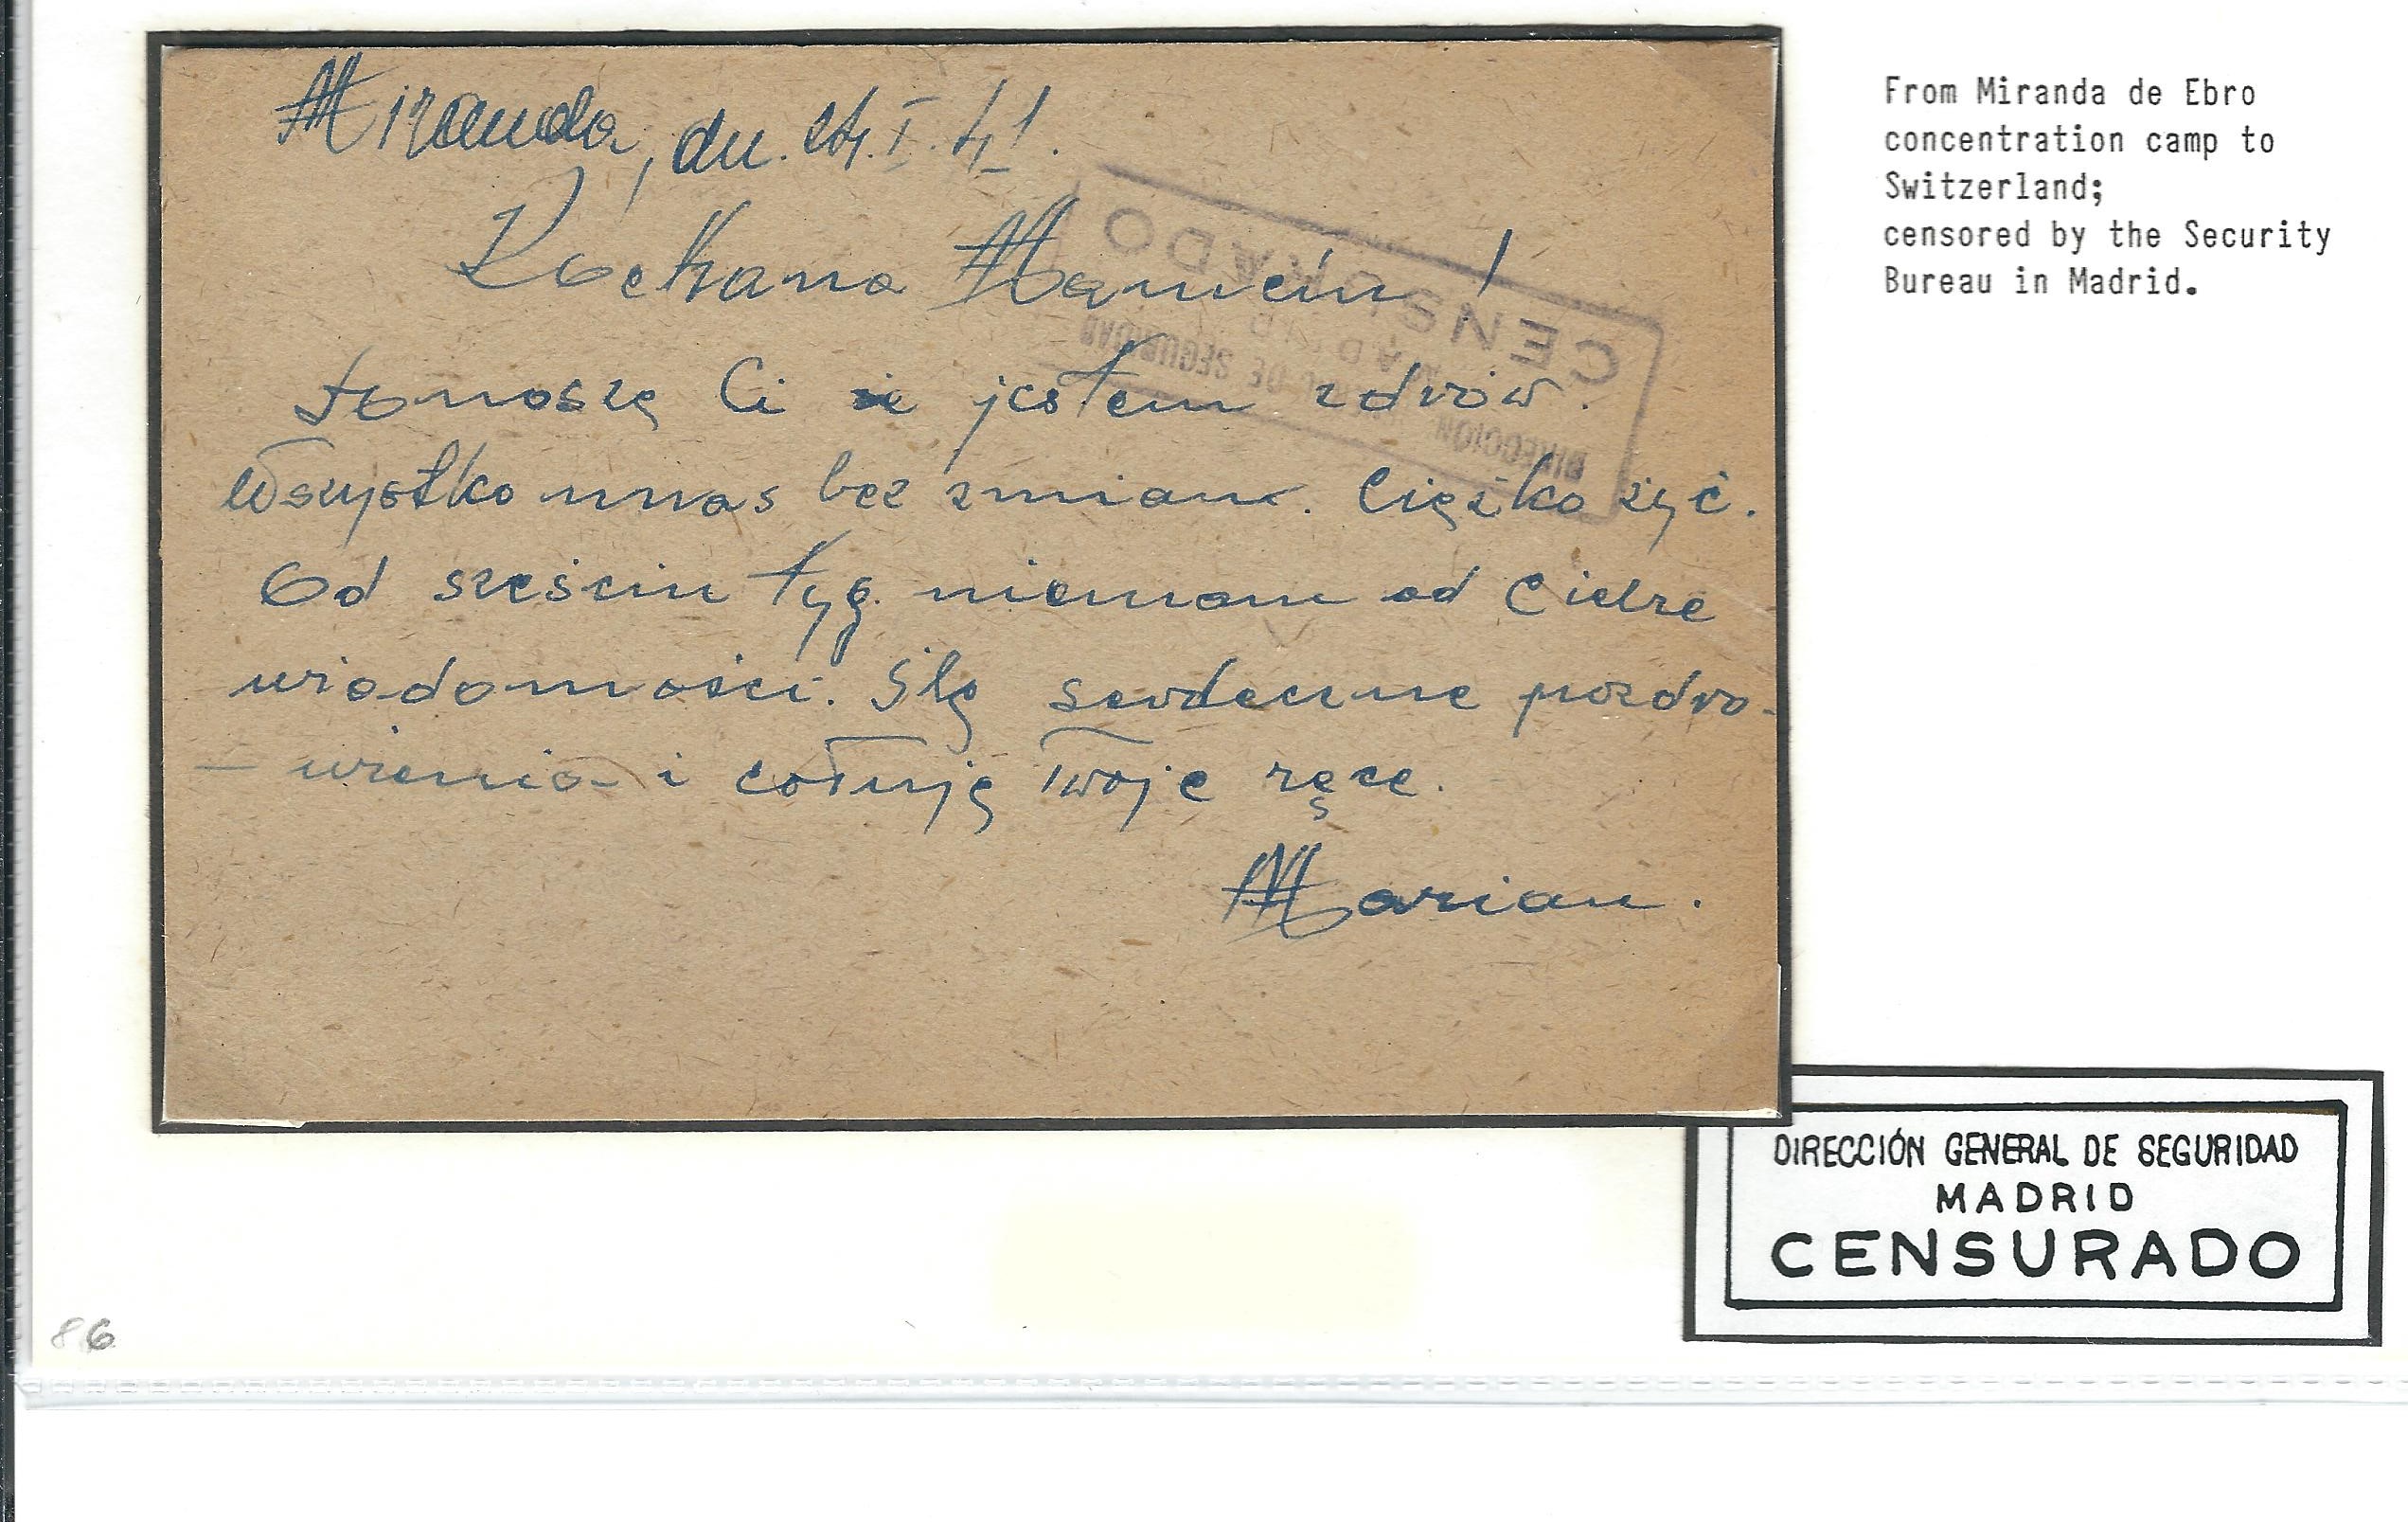 Miranda, dn. 24.I.41.
Kochana Mamciu!
Donoszę Ci że jestem zdrów.
Wszystko u nas bez zmian. Ciężko żyć.
Od sześciu tyg. niemam od Ciebie
wiadomości. Ślę serdeczne pozdro-
- wienia i całuję Twoje ręce.
Marian.
DIRECCIÓN GENERAL DE SEGURIDAD
MADRID
CENSURADO
From Miranda de Ebro
concentration camp to
Switzerland;
censored by the Security
Bureau in Madrid.
DIRECCIÓN GENERAL DE SEGURIDAD
MADRID
CENSURADO
86